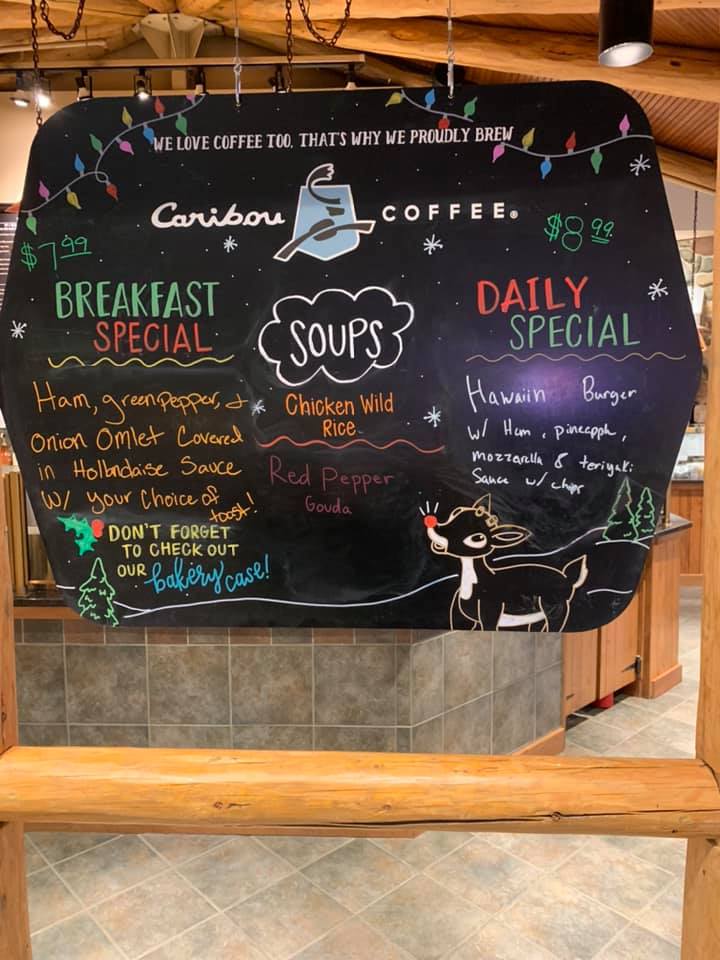 WE LOVE COFFEE TOO, THAT'S WHY WE PROUDLY BREW
Caribou COFFEE®
$7.99
BREAKFAST
SPECIAL
Ham, green pepper, &
Onion Omlet Covered
in Hollandaise Sauce
w/ your Choice of
toast!
DON'T FORGET
TO CHECK OUT
OUR bakery case!
SOUPS
Chicken Wild
Rice
Red Pepper
Gouda
$8.99
DAILY
SPECIAL
Hawaiin Burger
w/ Ham, pineapple,
mozzarella & teriyaki
Sauce w/ chips